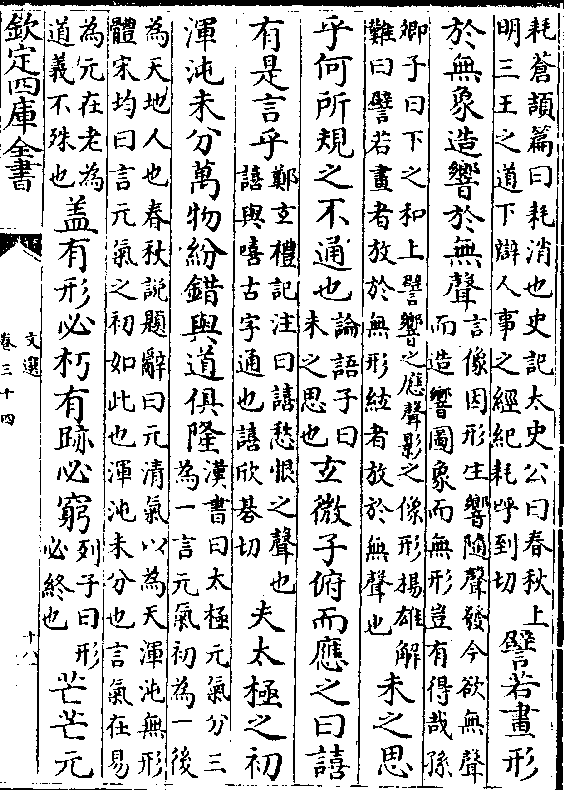 耗蒼頡篇曰耗消也史記太史公曰春秋上
明三王之道下辯人事之經紀耗呼到切
譬若畫形
於無象造響於無聲
言像因形生響隨聲發今欲無聲
而造響圖象而無形豈有得哉孫
卿子曰下之和上譬響之應聲影之像形揚雄解
難曰譬若畫者放於無形絃者放於無聲也
未之思
乎何所規之不通也
論語子曰
未之思也
玄微子俯而應之曰譆
有是言乎
鄭玄禮記注曰譆愁恨之聲也
譆與嘻古字通也譆欣碁切
夫太極之初
渾沌未分萬物紛錯與道俱隆
漢書曰太極元氣分三
為一言元氣初為一後
為天地人也春秋說題辭曰元清氣以為天渾沌無形
體宋均曰言元氣之初如此也渾沌未分也言氣在易
為元在老為
道義不殊也
盖有形必朽有跡必窮
列子曰形
必終也
芒芒元
欽定四庫全書
文選
卷三十四
十八